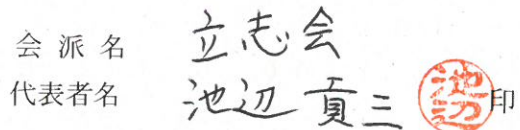 会派名 立志会
代表者名 池辺貢三 池辺 印